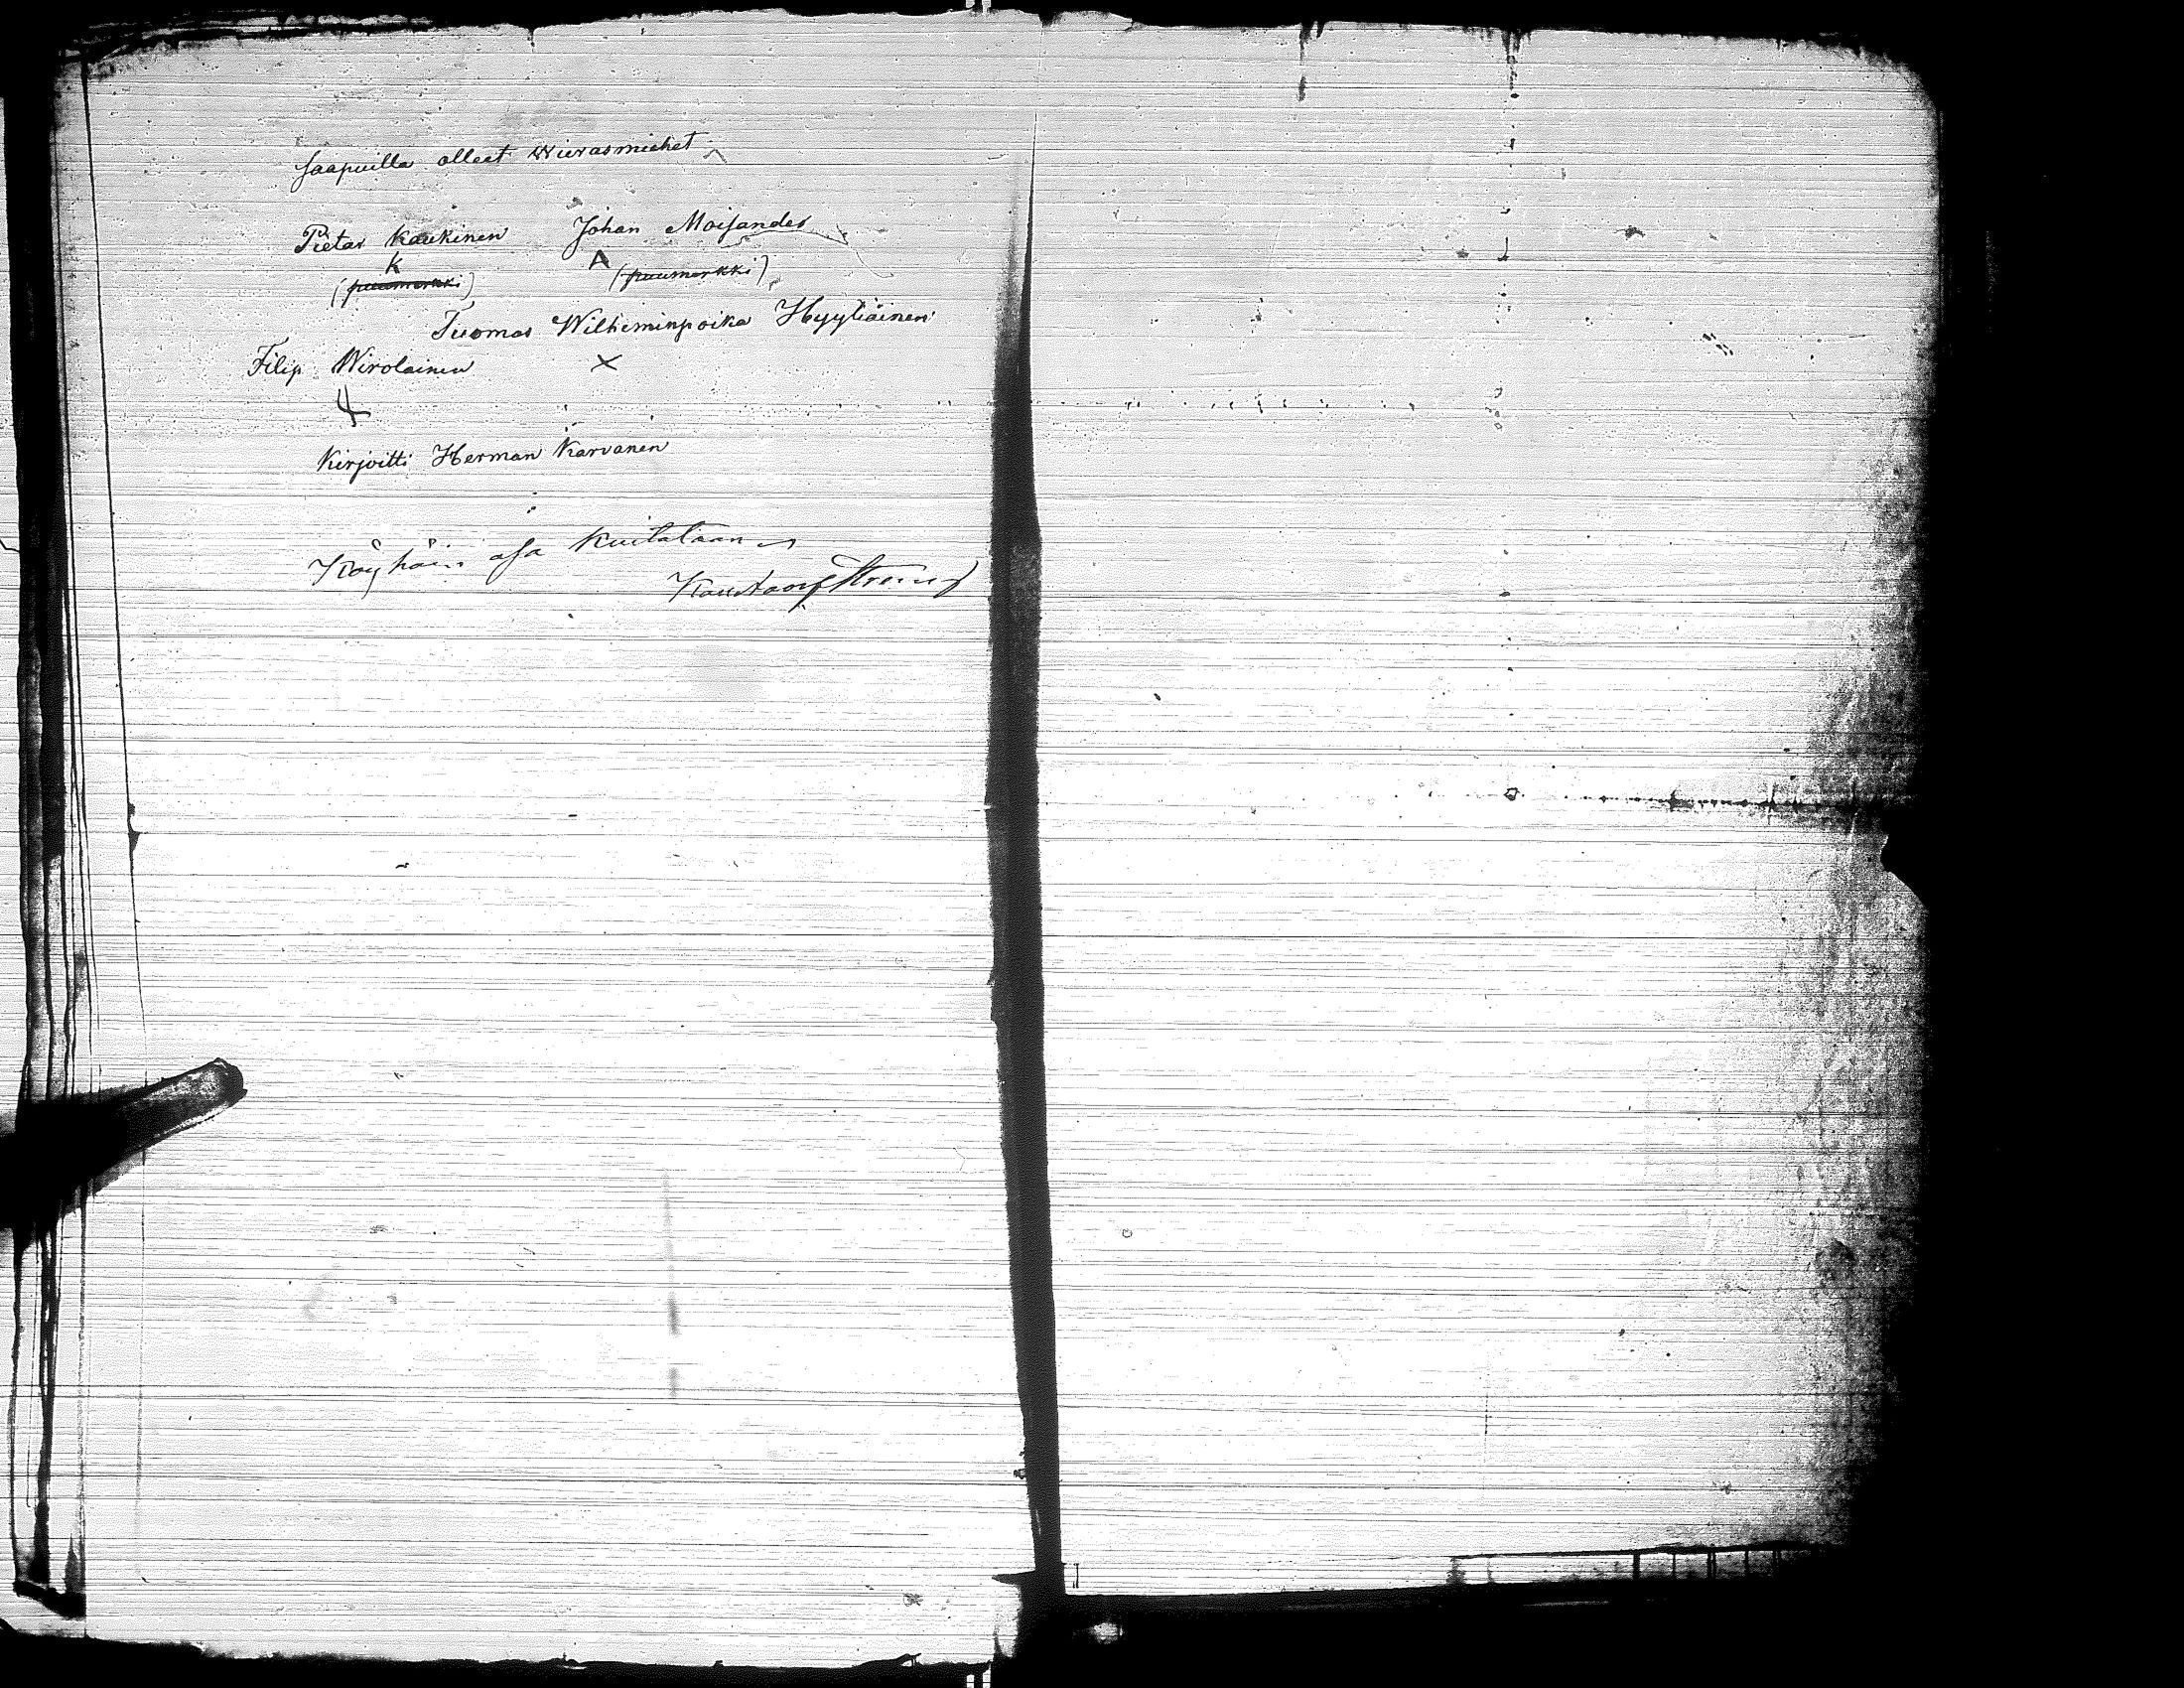 saapuilla olleet Wierasmiehet
Pietar Kaukinen Johan Moisander
K A
(puumerkki) (puumerkki)
Tuomas Wilheminpoika Hyytiäinen
Filip Wirolainen X
Kirjoitti Herman Karvanen
Köyhäin osa kuitataan